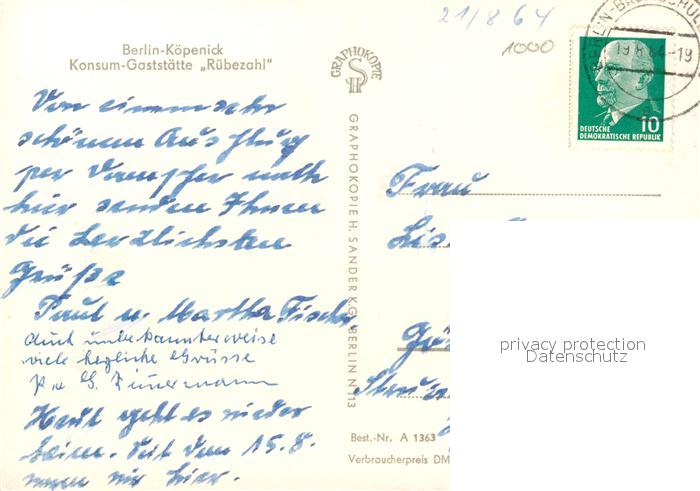 21/8 64
1000
Berlin-Köpenick
Konsum-Gaststätte „Rübezahl"
GRAPHOKOPIE
H S
BERLIN-BAUMSCHUL
19.8.64-19
DEUTSCHE
DEMOKRATISCHE REPUBLIK
10
Von einem sehr
schönen Ausflug
per Dampfer nach
hier senden Ihnen
die herzlichsten
Grüße
Paul u. Martha Fischer
auch unbekannterweise
viele herzliche Grüsse
Heut geht es wieder
heim. Seit dem 15.8.
waren wir hier.
GRAPHOKOPIE H. SANDER KG. BERLIN N 113
Frau
privacy protection
Datenschutz
Best.-Nr. A 1363
Verbraucherpreis DM